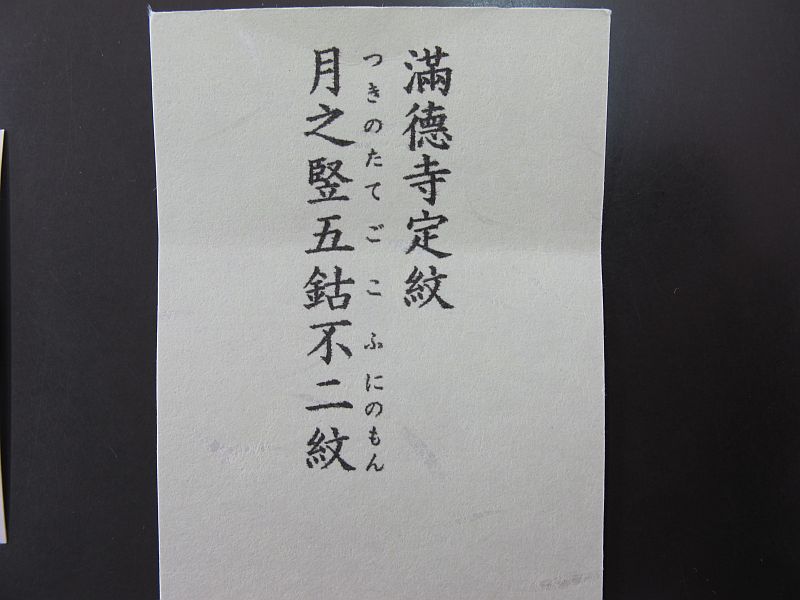 滿德寺定紋
月之竪五鈷不二紋
つきのたてごこふにのもん